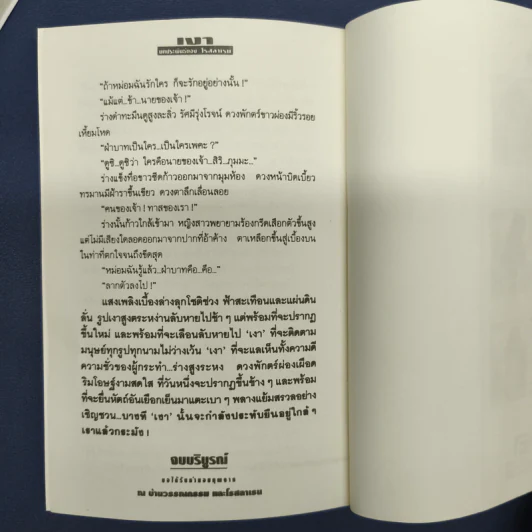 เงา
บทประพันธ์ของ โรสลาเรน
“ถ้าหม่อมฉันรักใคร ก็จะรักอยู่อย่างนั้น !”
“แม้แต่..ข้า..นายของเจ้า !”
ร่างดำทะมึนดูสูงละลิ่ว รัศมีรุ่งโรจน์ ดวงพักตร์ขาวผ่องมีริ้วรอย
เหี้ยมโหด
“ฝ่าบาทเป็นใคร..เป็นใครเพคะ ?”
“ดูซิ..ดูซิว่า ใครคือนายของเจ้า..สิริ..ภุมมะ..”
ร่างแข็งทื่อขาวซีดก้าวออกมาจากมุมห้อง ดวงหน้าบิดเบี้ยว
ทรมานมีฝ้าราขึ้นเขียว ดวงตาลึกเลื่อนลอย
“คนของเจ้า ! ทาสของเรา !”
ร่างนั้นก้าวใกล้เข้ามา หญิงสาวพยายามร้องกรีดเสือกตัวขึ้นสูง
แต่ไม่มีเสียงใดลอดออกมาจากปากที่อ้าค้าง ตาเหลือกขึ้นสู่เบื้องบน
ในท่าที่ตกใจจนถึงขีดสุด
“หม่อมฉันรู้แล้ว..ฝ่าบาทคือ..คือ..”
“ลากตัวลงไป !”
แสงเพลิงเบื้องล่างลุกโชติช่วง ฟ้าสะเทือนและแผ่นดิน
ลั่น รูปเงาสูงตระหง่านลับหายไปช้า ๆ แต่พร้อมที่จะปรากฏ
ขึ้นใหม่ และพร้อมที่จะเลือนลับหายไป ‘เงา’ ที่จะติดตาม
มนุษย์ทุกรูปทุกนามไม่ว่างเว้น ‘เงา’ ที่จะแลเห็นทั้งความดี
ความชั่วของผู้กระทำ..ร่างสูงระหง ดวงพักตร์ผ่องเผือด
ริมโอษฐ์งามสดใส ที่วันหนึ่งจะปรากฏขึ้นข้าง ๆ และพร้อม
ที่จะยื่นหัตถ์อันเยือกเย็นมาแตะเบา ๆ พลางแย้มสรวลอย่าง
เชิญชวน...บางที ‘เงา’ นั้นจะกำลังประทับยืนอยู่ใกล้ ๆ
เราแล้วกระมัง !
จบบริบูรณ์
ณ บ้านวรรณกรรม และโรสลาเรน